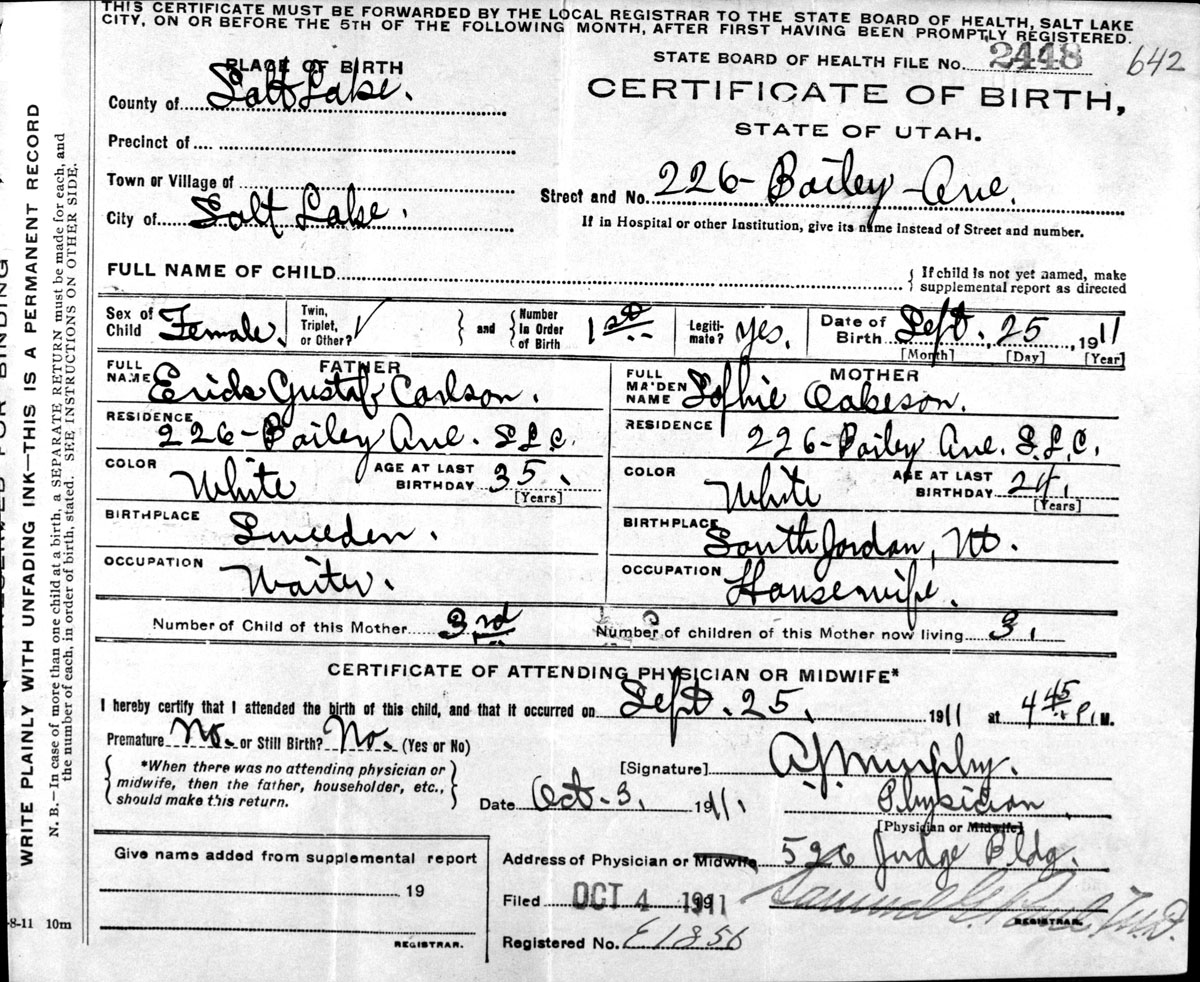 THIS CERTIFICATE MUST BE FORWARDED BY THE LOCAL REGISTRAR TO THE STATE BOARD OF HEALTH, SALT LAKE
CITY, ON OR BEFORE THE 5TH OF THE FOLLOWING MONTH, AFTER FIRST HAVING BEEN PROMPTLY REGISTERED.
STATE BOARD OF HEALTH FILE No. 2448 642
PLACE OF BIRTH
County of Salt Lake.
CERTIFICATE OF BIRTH,
STATE OF UTAH.
Precinct of
Town or Village of
Street and No. 226- Bailey Ave.
City of Salt Lake.
If in Hospital or other Institution, give its name instead of Street and number.
FULL NAME OF CHILD
{ If child is not yet named, make
supplemental report as directed
Sex of Child Female.
Twin, Triplet, or Other? √
} and { Number in Order of Birth 1st
Legiti- mate? Yes.
Date of Birth Sept. 25 1911
[Month] [Day] [Year]
FATHER
FULL NAME Erick Gustaf Carlson.
RESIDENCE 226- Bailey Ave. S.L.C.
COLOR White AGE AT LAST BIRTHDAY 35.
[Years]
BIRTHPLACE Sweeden.
OCCUPATION Waiter.
MOTHER
FULL MAIDEN NAME Sophie Oakeson.
RESIDENCE 226- Bailey Ave. S.L.C.
COLOR White AGE AT LAST BIRTHDAY 24.
[Years]
BIRTHPLACE South Jordan, Ut.
OCCUPATION Housewife.
Number of Child of this Mother 3rd Number of children of this Mother now living 3.
CERTIFICATE OF ATTENDING PHYSICIAN OR MIDWIFE*
I hereby certify that I attended the birth of this child, and that it occurred on Sept. 25, 1911 at 4 45 P.M.
Premature No. or Still Birth? No. (Yes or No)
{ *When there was no attending physician or
midwife, then the father, householder, etc.,
should make this return. }
[Signature] A.J. Murphy.
Physician
[Physician or Midwife]
Date Oct. 3. 1911.
Address of Physician or Midwife 526 Judge Bldg.
Filed OCT 4 1911 Samuel G. Paul M.D.
REGISTRAR.
Registered No. E1856
Give name added from supplemental report
19
REGISTRAR.
-8-11 10m
WRITE PLAINLY WITH UNFADING INK—THIS IS A PERMANENT RECORD
N. B.—In case of more than one child at a birth, a SEPARATE RETURN must be made for each, and
the number of each, in order of birth stated. SEE INSTRUCTIONS ON OTHER SIDE.